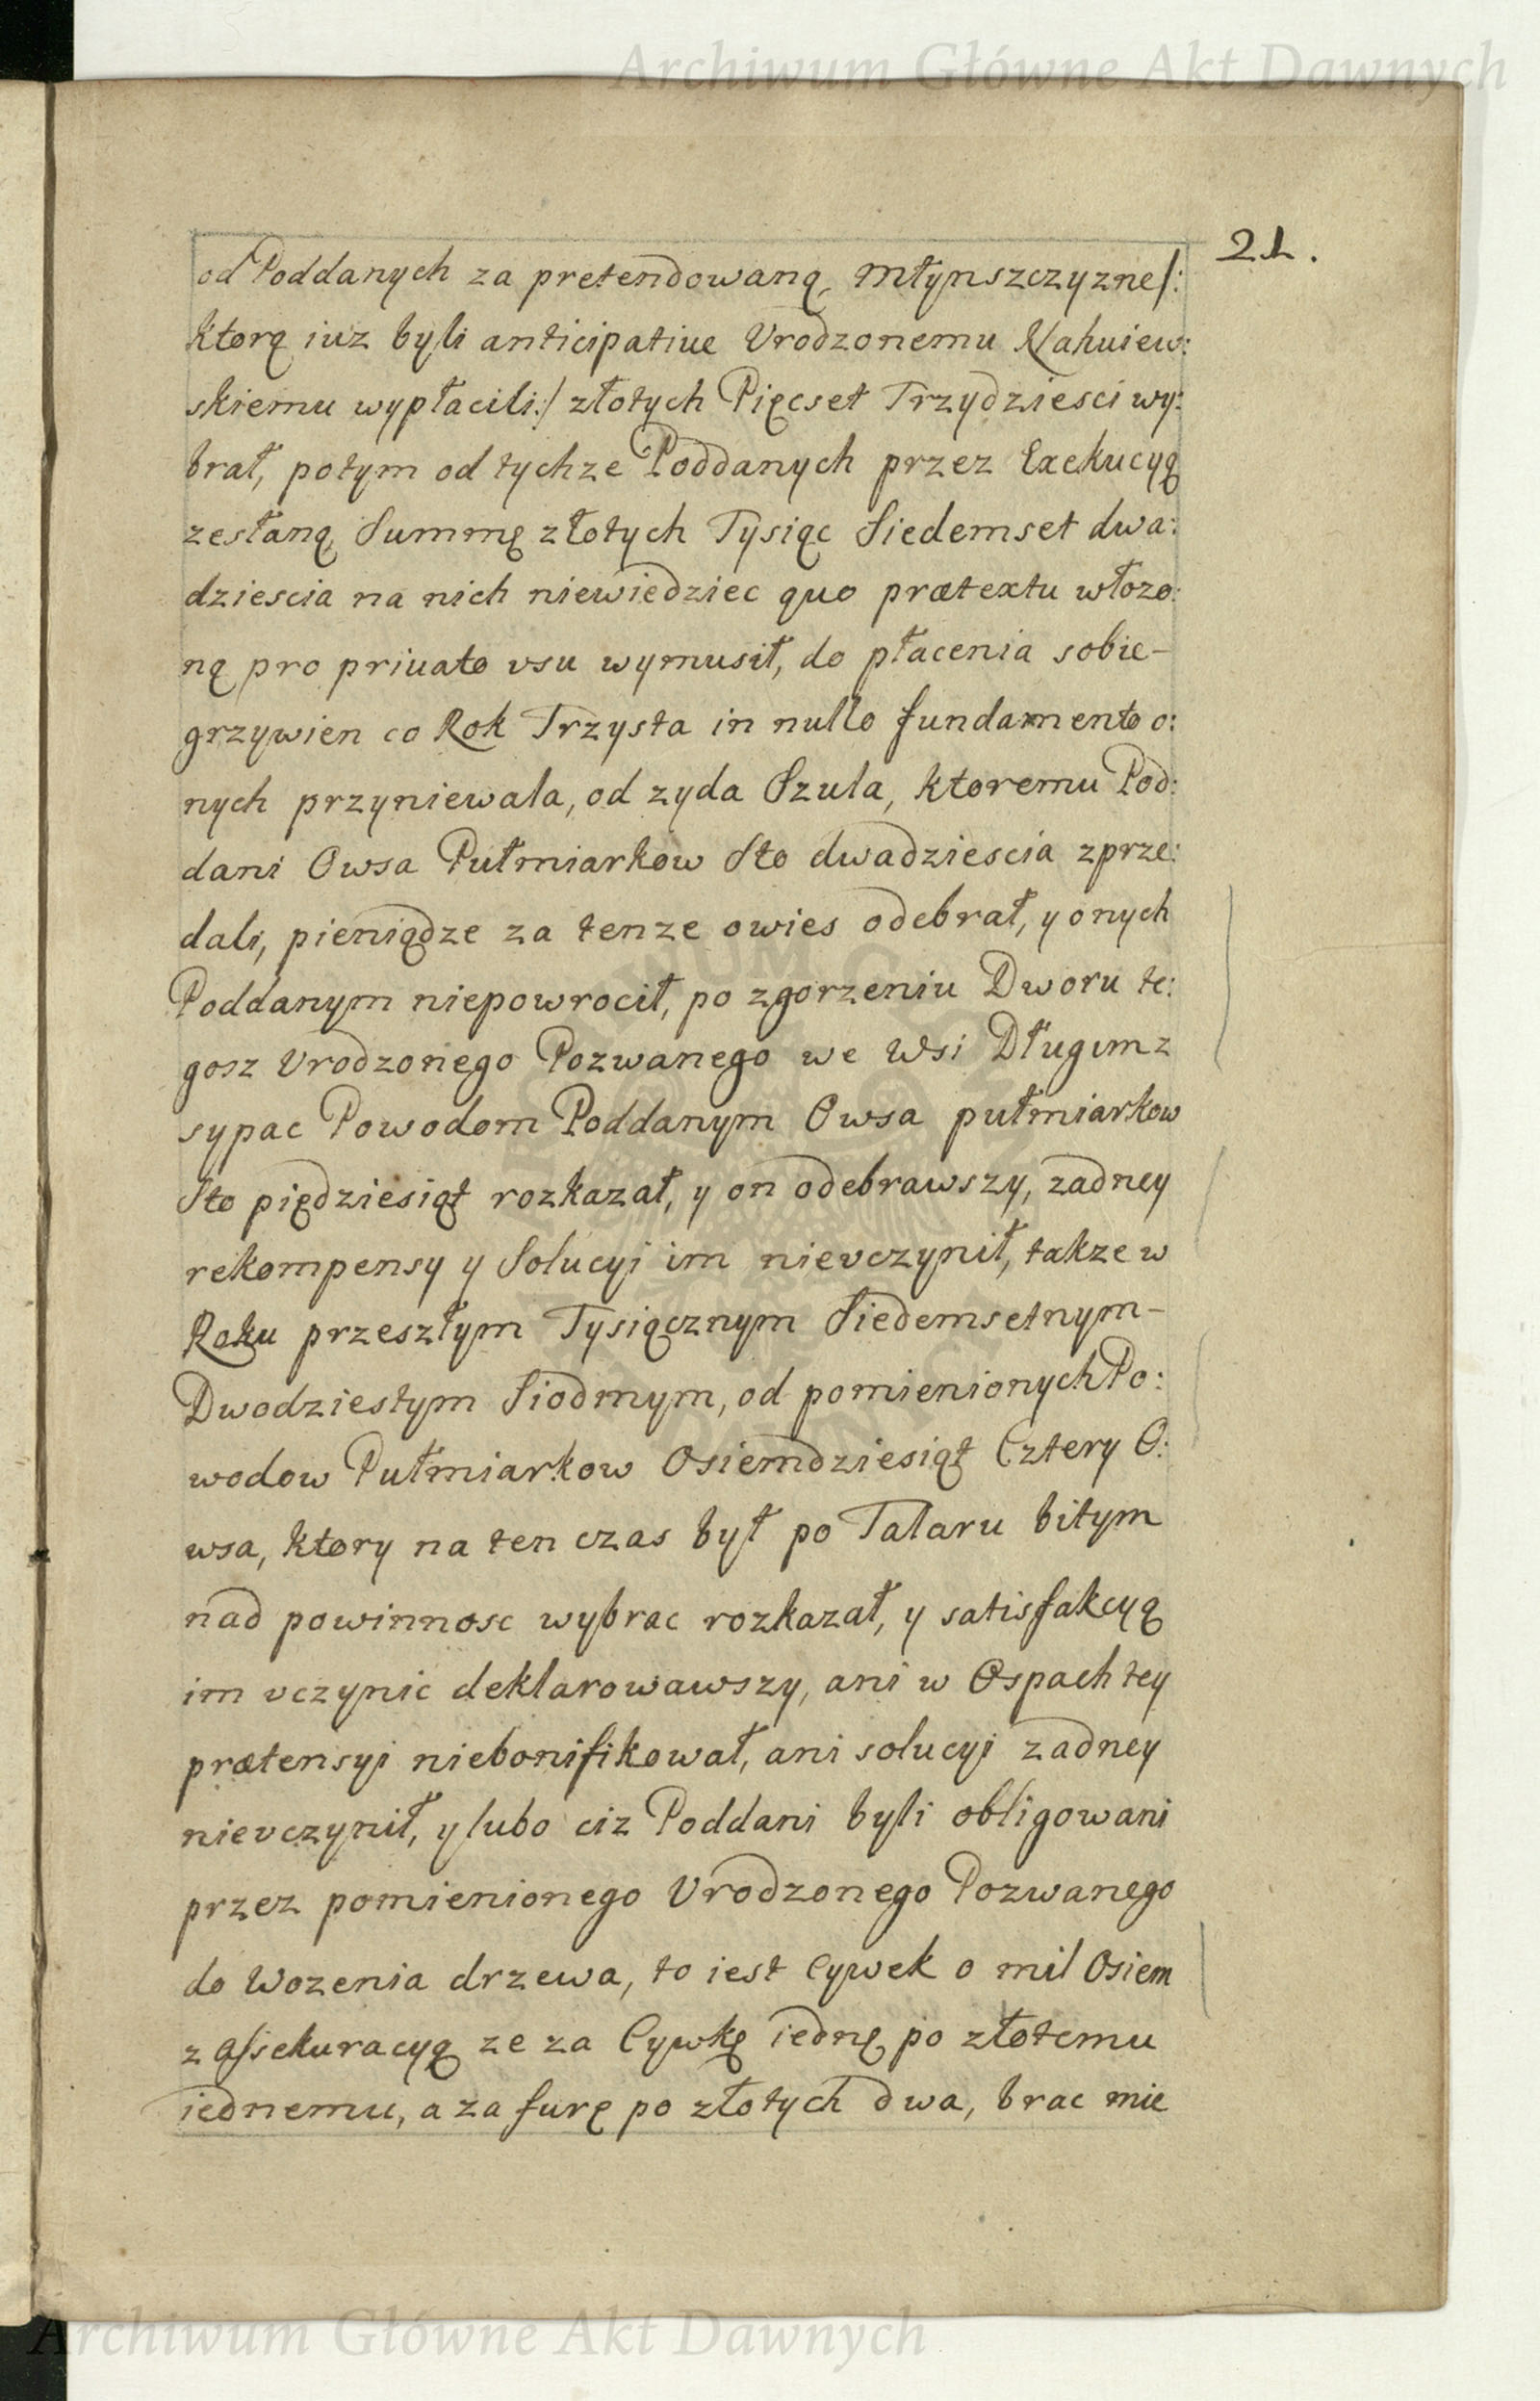 Archiwum Główne Akt Dawnych
21.
od Poddanych za pretendowaną Młynszczyznę/:
ktorą iuz byli anticipatiue Vrodzonemu Nahuiew:
skiemu wypłacili:/ złotych Pięcset Trzydziesci wy:
brał, potym od tychze Poddanych przez Exekucyą
zesłaną Summę złotych Tysiąc Siedemset dwa:
dziescia na nich niewiedziec quo prætextu włozo:
ną pro priuato vsu wymusił, do płacenia sobie-
grzywien co Rok Trzysta in nullo fundamento o:
nych przyniewala, od zyda Szula, ktoremu Pod:
dani Owsa Pułmiarkow Sto dwadziescia zprze:
dali, pieniądze za tenze owies odebrał, y onych
Poddanym niepowrocił, po zgorzeniu Dworu te:
gosz Vrodzonego Pozwanego we Wsi Długim z
sypac Powodom Poddanym Owsa pułmiarkow
Sto pięدziesiąt rozkazał, y on odebrawszy, zadney
rekompensy y Solucyi im nievczynił, takze w
Roku przeszłym Tysiącznym Siedemsetnym-
Dwodziestym Siodmym, od pomienionych Po:
wodow Pułmiarkow Osiemdziesiąt Cztery O:
wsa, ktory na ten czas był po Talaru bitym
nad powinnosc wybrac rozkazał, y satisfakcyą
im vczynic deklarowawszy, ani w Ospach tey
prætensyi niebonifikował, ani solucyi zadney
nievczynił, y lubo ciz Poddani byli obligowani
przez pomienionego Vrodzonego Pozwanego
do Wozenia drzewa, to iest Cywek o mil Osiem
z Assekuracyą ze za Cywkę iednę po złotemu
iednemu, a za furę po złotych dwa, brac mie
Archiwum Główne Akt Dawnych